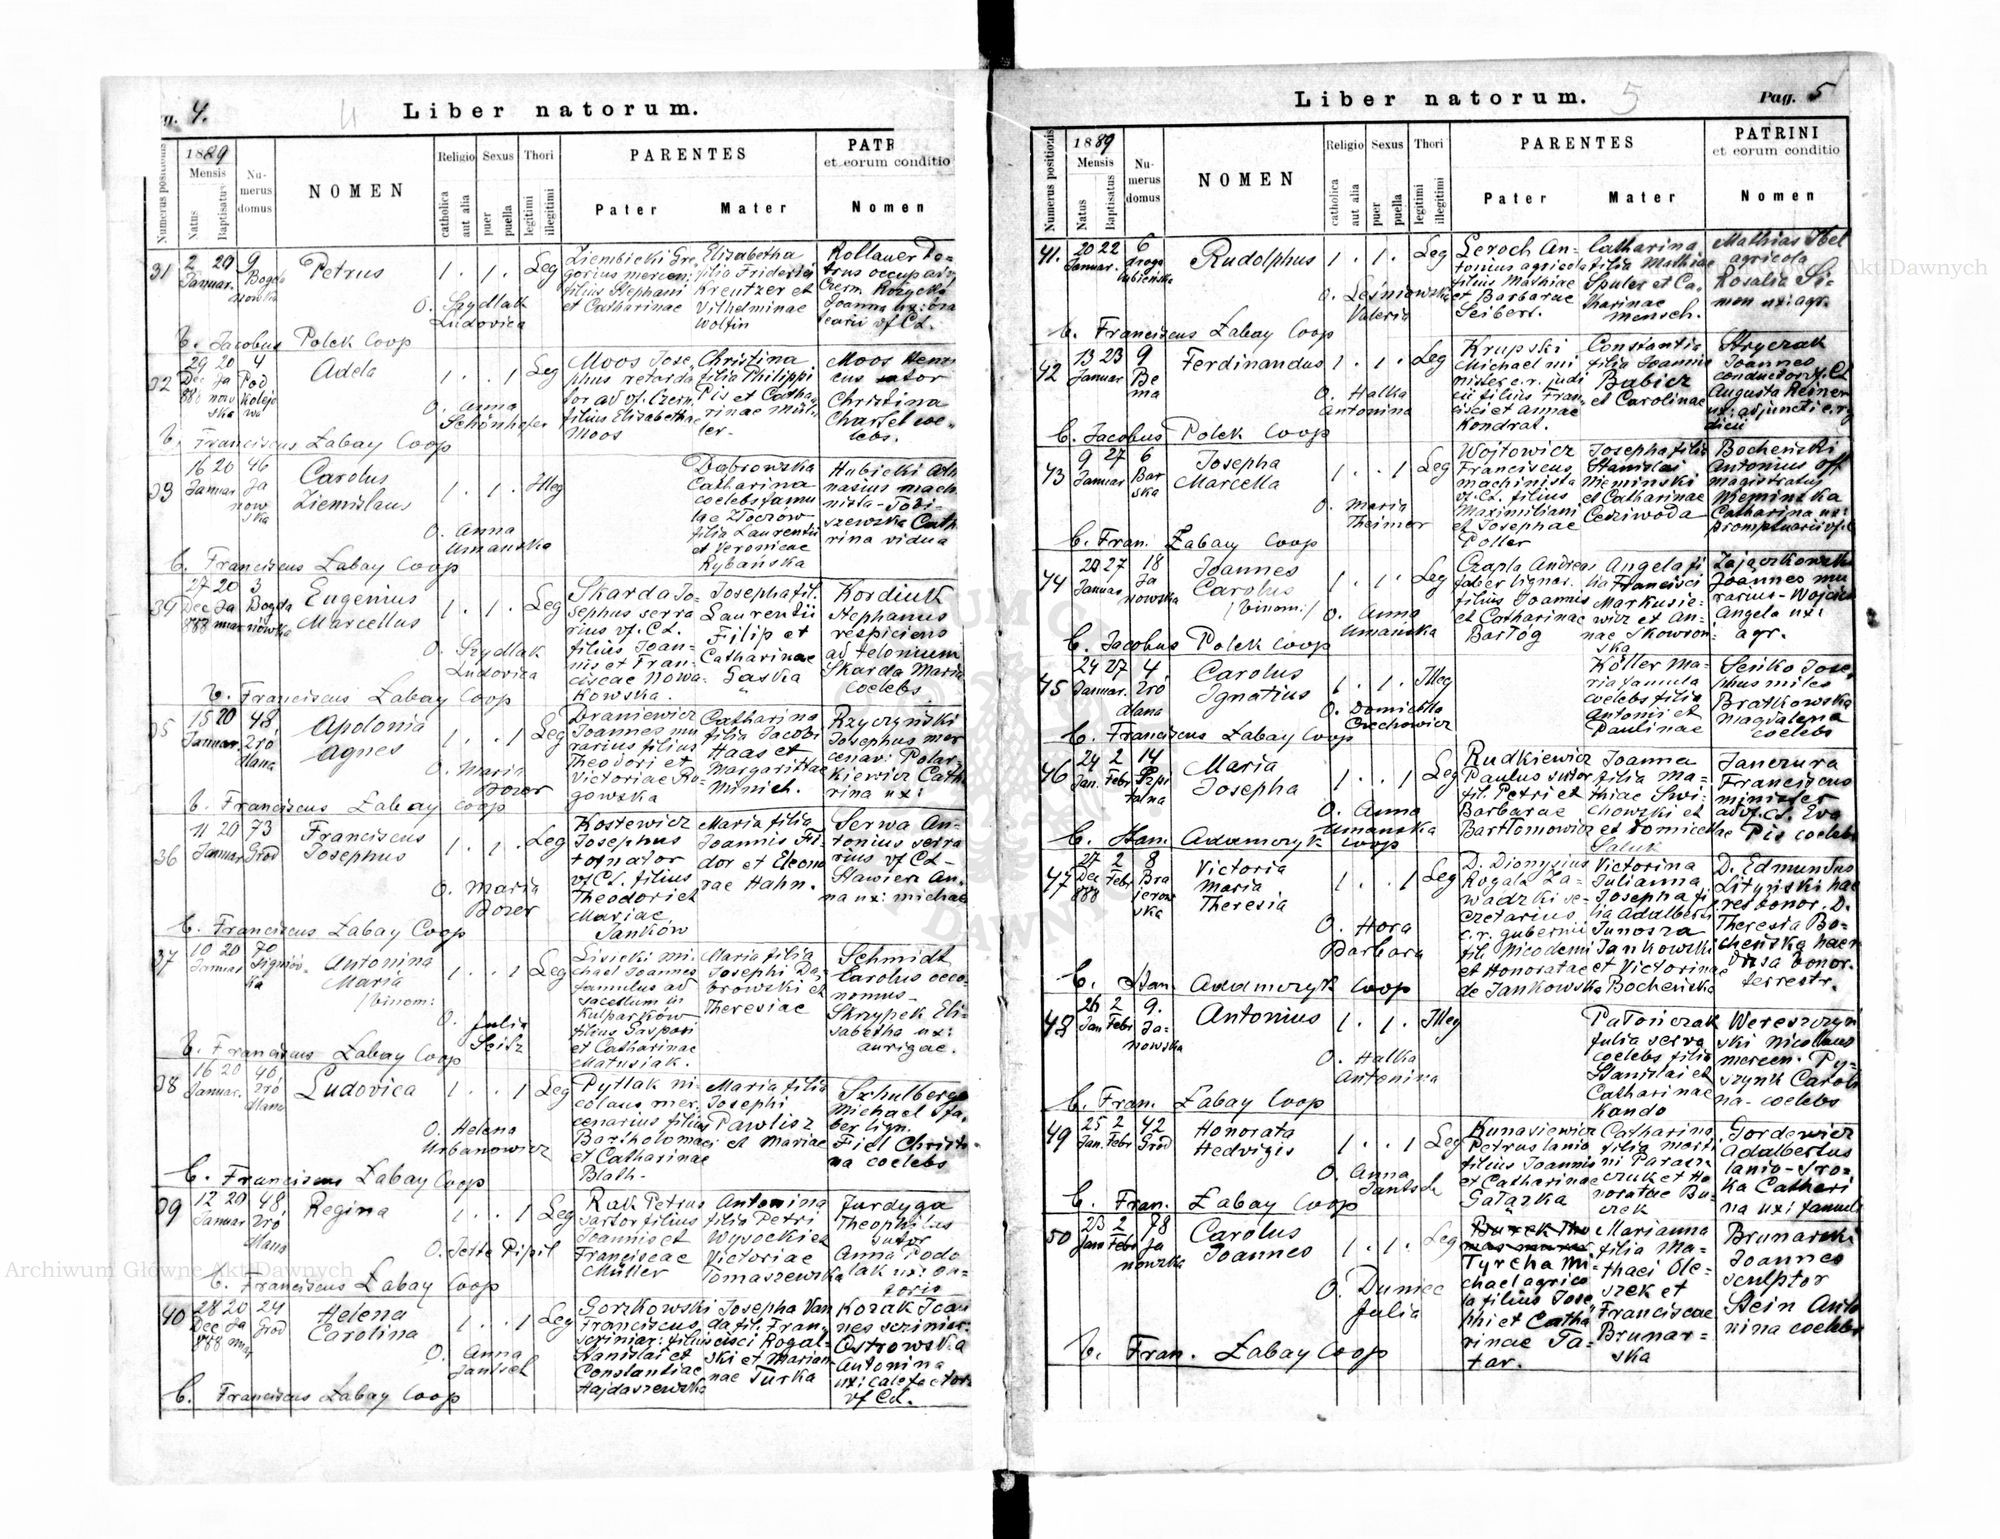 Pag. 4.
Liber natorum.
1889
Mensis
Numerus positionis
Natus
Baptisatus
Nu-
merus
domus
NOMEN
Religio
catholica
aut alia
Sexus
puer
puella
Thori
legitimi
illegitimi
PARENTES
Pater
Mater
PATR
et eorum conditio
Nomen
31
2 20
Januar.
9
Bogda
nowka
Petrus
1 . 1 . Leg
O. Szydlak
Ludovica
Ziembicki Gre
gorius mercen:
filius Stephani
et Catharinae
Elisabetha
filia Friderici
Kreutzer et
Vilhelminae
Woltin
Kollauer Pe-
trus
Joanna ux:
C. Jacobus Polek Coop
32
29 20
Dec Ja
888 nou
4
Pod
koleje
we
Adela
1 . . 1 Leg
O. Anna
Schönhofer
Moos Jose
phus retorda
tor ad vf. Czern.
filius Elisabethae
Moos
Christina
filia Philippi
Pis et Catha
rinae Mül
ler-
Moos Henri
cus sutor
Christina
Charsel coe-
lebs.
C. Franciscus Łabay Coop
33
16 20
Januar
46
Ja
now
ska
Carolus
Ziemislaus
1 . 1 . Illeg
O. Anna
Umanska
Dąbrowska
Catharina
coelebs famu
lae Złoczów
filia Laurentii
et Veronicae
Rybańska
Habicki Atha
nasius mach
nista - Tobi-
szewska Cath
rina vidua
C. Franciscus Łabay Coop
34
27 20
Dec Ja
888 nuar
3
Bogda
nówka
Eugenius
Marcellus
1 . 1 . Leg
O. Szydlak
Ludovica
Skarda Jo-
sephus serra
rius vf. Cl.
filius Joan-
nis et Fran-
ciscae Nowa-
kowska.
Josepha fil.
Laurentii
Filip et
Catharinae
Gaska
Kordiuk
Stephanus
respiciens
ad telonium
Skarda Maria
coelebs
C. Franciscus Łabay Coop
35
15 20
Januar.
48
Zró
dlana
Apolonia
Agnes
1 . . 1 Leg
O. Maria
Bozer
Draniewicz
Joannes mu
rarius filius
Theodori et
Victoriae Ro-
gowska
Catharina
filia Jacobi
Haas et
Margarithae
Minich.
Rzyczyński
Josephus mer
cenar: Polar-
kiewicz Cath
rina ux:
C. Franciscus Łabay Coop
36
11 20
Januar
73
Grod
Franciscus
Josephus
1 . 1 . Leg
O. Maria
Bozer
Kostewicz
Josephus
tornator
vf Cl. filius
Theodori et
Mariae
Janków
Maria filia
Joannis Fi-
dor et Eleono
rae Hahn.
Serwa An-
tonius serra
rius vf Cl-
Stawierz An-
na ux:
C. Franciscus Łabay Coop
37
10 20
Januar
70
Antonina
Maria
/binom:
1 . . 1 Leg
O. Julia
Seifz
Lisicki Mi-
chael Joannes
famulus ad
sacellum in
Kulparków
filius Gaspari
et Catharinae
Matusiak.
Maria filia
Josephi Da,
browski et
Theresiae
Schmidt
Carolus oeco-
nomus-
Skrzypek Eli-
sabetha ux:
aurigae.
C. Franciscus Łabay Coop
38
16 20
Januar.
40
Zró
dlana
Ludovica
1 . . 1 Leg
O. Helena
Urbanowicz
Pytlak Ni-
colaus mer-
cenarius filius
Bartholomaei
et Catharinae
Blath-
Maria filia
Josephi
Pawlisz
et Mariae
Szhulberge
Michael
ber lign.
Fiel Christi
na coelebs
C. Franciscus Łabay Coop
39
12 20
Januar
48
Zró
dlana
Regina
1 . . 1 Leg
O. Jette Pipil
Rak Petrus
sartor filius
Joannis et
Franciscae
Müller
Antonina
filia Petri
Wysocki et
Victoriae
Tomaszewska
Furdyga
Theophilus
sutor
Anna Podo
lak ux:
C. Franciscus Łabay Coop
40
28 20
Dec Ja
888 nuar
24
Grod
Helena
Carolina
1 . . 1 Leg
O. Anna
Jantsch
Gorzkowski
Franciscus
scriniar: filius
Stanislai et
Constantiae
Hajdaszewska
Josepha Van
da fil. Fran-
cisci Rogal-
ski et Marian
nae Turka
Kozak Joan
nes scriniar:
Ostrowska
Antonina
ux: calefactor
vf Cl.
C. Franciscus Łabay Coop
Liber natorum.
Pag. 5
5
1889
Mensis
Numerus positionis
Natus
Baptisatus
Nu-
merus
domus
NOMEN
Religio
catholica
aut alia
Sexus
puer
puella
Thori
legitimi
illegitimi
PARENTES
Pater
Mater
PATRINI
et eorum conditio
Nomen
41.
20 22
Januar.
6
droga
lubieńska
Rudolphus
1 . 1 . Leg
O. Leśniowska
Valeria
Leroch An-
tonius agricola
filius Mathiae
et Barbarae
Seibert.
Catharina
filia Mathiae
Spuler et Ca-
tharinae
Mensch.
Mathias Ibel
agricola
Rosalia Si-
mon ux: agr.
C. Franciscus Łabay Coop
42
13 23
Januar
9
Be
ma
Ferdinandus
1 . 1 . Leg
O. Halka
Antonina
Krupski
Michael mi
nister c.r. judi
cii filius Fran-
cisci et Annae
Kondrat.
Constantia
filia Joannis
Babicz
et Carolinae
Stryczak
Joannes
conductor vf. Cl
Augusta Reiner
ux: adjuncti c. r.
C. Jacobus Polek Coop
43
9 27
Januar
6
Bar
ska
Josepha
Marcella
1 . . 1 Leg
O. Maria
Theimer
Wojtowicz
Franciscus
machinista
vf. Cl. filius
Maximiliani
et Josephae
Poller
Josepha filia
Stanislai
Nieminski
et Catharinae
Cedziwoda
Bocheński
Antonius off
magistratus
Nieminska
Catharina ux:
promptuarii vf. C
C. Fran. Łabay Coop
44
20 27
Januar
18
Ja
nowska
Joannes
Carolus
/binom:/
1 . 1 . Leg
O. Anna
Umanska
Czapla Andreas
faber lignar.
filius Joannis
et Catharinae
Bartóg
Angela fi
lia Francisci
Markusie-
wicz et An-
nae Skowron-
ska
Zajączkowski
Joannes mu
rarius - Wojcicka
Angela ux:
agr.
C. Jacobus Polek Coop
45
24 27
Januar.
4
Zró
dlana
Carolus
Ignatius
1 . 1 . Illeg
O. Domicella
Czechowicz
Koller Ma-
ria famula
coelebs filia
Antonii et
Paulinae
Senko Jose
phus miles
Bratkowska
Magdalena
coelebs
C. Franciscus Łabay Coop
46
24 2
Jan. Febr
14
Szpi
talna
Maria
Josepha
1 . . 1 Leg
O. Anna
Umanska
Rudkiewicz
Paulus sutor
fil. Petri et
Barbarae
Bartłomowicz
Joanna
filia Ma-
thiae Swi-
chowski et
et Domicellae
Saluk
Janczura
Franciscus
minister
ad vf. Cl. Eva
Pis coelebs
C. Stan. Adamczyk Coop
47
27 2
Dec Febr
888
8
Bra
jerow
ska
Victoria
Maria
Theresia
1 . . 1 Leg
O. Hora
Barbara
D. Dionysius
Rogala Za-
wadzki se-
cretarius
c. r. gubernii
fil. Nicodemi
et Honoratae
de Jankowska
Victorina
Julianna
Josepha fi
lia Adalberti
Junosza
Jankowski
et Victorinae
Bocheńska
D. Edmundus
Lityński hae
res bonor. D.
Theresia Bo-
cheńska haere
dissa bonor.
terrestr.
C. Stan. Adamczyk Coop
48
26 2
Jan Febr
9.
Ja-
nowska
Antonius
1 . 1 . Illeg
O. Halka
Antonina
Patończak
Julia serva
coelebs filia
Stanislai et
Catharinae
Kando
Wereszczyn
ski Nicolaus
mercen. Py-
szynk Caroli
na - coelebs
C. Fran. Łabay Coop
49
25 2
Jan. Febr
42
Grod
Honorata
Hedvigis
1 . . 1 Leg
O. Anna
Jantsch
Kunasiewicz
Petrus lanio
filius Joannis
et Catharinae
Gałązka
Catharina
filia Marti
ni Parasz
czuk et Ho
noratae Bu-
czek
Gordewicz
Adalbertus
lanio - Sro-
ka Cathari
na ux: famuli
C. Fran. Łabay Coop
50
23 2
Jan Febr
78
Ja
nowska
Carolus
Joannes
1 . 1 . Leg
O. Duniec
Julia
Tyrcha Mi-
chael agrico
la filius Jose
phi et Catha
rinae Ta-
tar.
Marianna
filia Ma-
thaei Ole-
szek et
Franciscae
Brunar-
ska
Brunarski
Joannes
sculptor
Stein Anto
nina coelebs
C. Fran. Łabay Coop
Archiwum Główne Akt Dawnych
Archiwum Główne Akt Dawnych